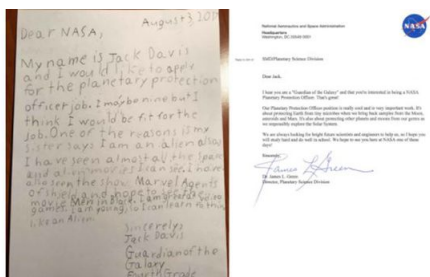 August 3 
Dear NASA,
My name is Jack Davis
and I would like to apply
for the planetary protection
officer job. I may be nine but I
think I would be fit for the
job. One of the reasons is my
sister says I am an alien also
I have seen almost all the space
and alien movies I can see. I have
also seen the show Marvel Agents
of Shield and hope to see the
movie Men in Black. I am great at vidieo
games. I am young, so I can learn to think
like an Alien.
Sincerely,
Jack Davis
Guardian of the
Galaxy
Fourth Grade
National Aeronautics and Space Administration
Headquarters
Washington, DC 20546-0001
NASA
NASA/Planetary Science Division
Dear Jack,
I hear you are a "Guardian of the Galaxy" and that you're interested in being a NASA
Planetary Protection Officer. That's great!
Our Planetary Protection Officer position is really cool and is very important work. It's
about protecting Earth from tiny microbes when we bring back samples from the Moon,
asteroids and Mars. It's also about protecting other planets and moons from our germs as
we responsibly explore the Solar System.
We are always looking for bright future scientists and engineers to help us, so I hope you
will study hard and do well in school. We hope to see you here at NASA one of these
days!
Sincerely,
James L Green
Dr. James L. Green
Director, Planetary Science Division